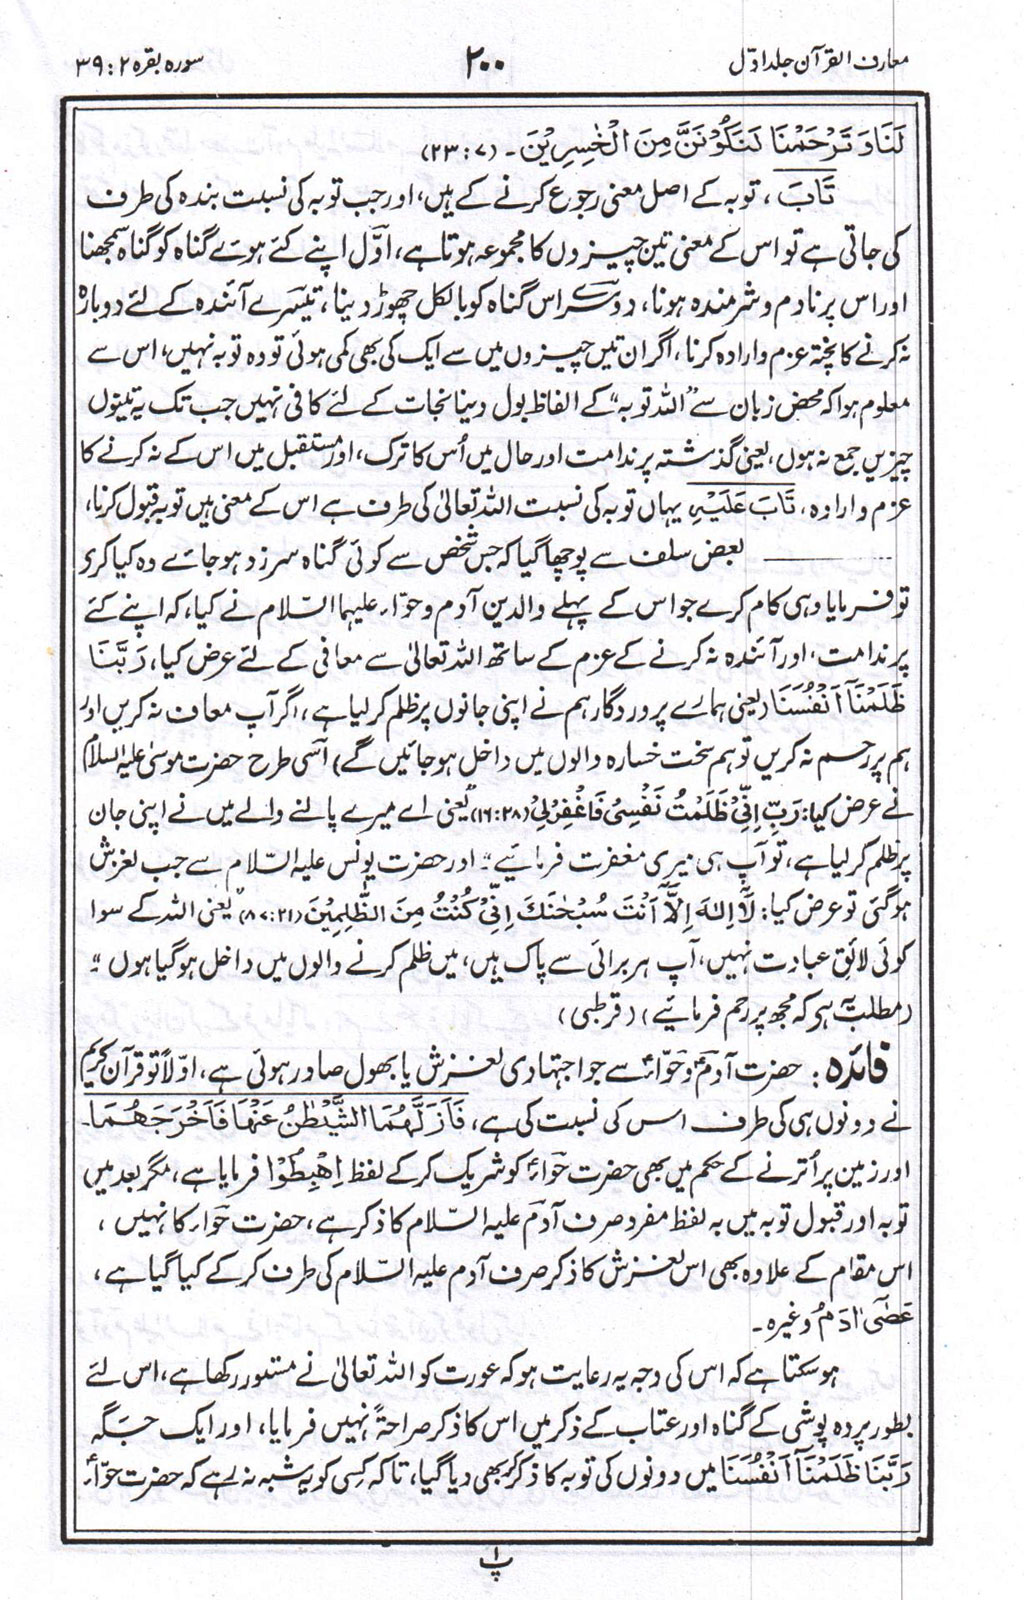 معارف القرآن جلد اوّل
۲۰۰
سورہ بقرہ ۲ : ۳۹
لَنَا وَ تَرْحَمْنَا لَنَكُوْنَنَّ مِنَ الْخٰسِرِيْنَ۔ (۷ : ۲۳)
تَابَ، توبہ کے اصل معنی رجوع کرنے کے ہیں، اور جب توبہ کی نسبت بندہ کی طرف
کی جاتی ہے تو اس کے معنی تین چیزوں کا مجموعہ ہوتا ہے، اوّل اپنے کئے ہوئے گناہ کو گناہ سمجھنا
اور اس پر نادم و شرمندہ ہونا، دوسرے اس گناہ کو بالکل چھوڑ دینا، تیسرے آئندہ کے لئے دوبارہ
نہ کرنے کا پختہ عزم و ارادہ کرنا، اگر ان تین چیزوں میں سے ایک کی بھی کمی ہوئی تو وہ توبہ نہیں، اس سے
معلوم ہوا کہ محض زبان سے ”اللہ توبہ“ کے الفاظ بول دینا نجات کے لئے کافی نہیں جب تک یہ تینوں
چیزیں جمع نہ ہوں، یعنی گذشتہ پر ندامت اور حال میں اُس کا ترک، اور مستقبل میں اس کے نہ کرنے کا
عزم و ارادہ، تَابَ عَلَيْهِ یہاں توبہ کی نسبت اللہ تعالیٰ کی طرف ہے اس کے معنی ہیں توبہ قبول کرنا،
بعض سلف سے پوچھا گیا کہ جس شخص سے کوئی گناہ سرزد ہو جائے وہ کیا کری
تو فرمایا وہی کام کرے جو اس کے پہلے والدین آدم و حوّاء علیہما السّلام نے کیا، کہ اپنے کئے
پر ندامت، اور آئندہ نہ کرنے کے عزم کے ساتھ اللہ تعالیٰ سے معافی کے لئے عرض کیا، رَبَّنَا
ظَلَمْنَآ اَنْفُسَنَا (یعنی ہمارے پروردگار ہم نے اپنی جانوں پر ظلم کر لیا ہے، اگر آپ معاف نہ کریں اور
ہم پر رحم نہ کریں تو ہم سخت خسارہ والوں میں داخل ہو جائیں گے) اسی طرح حضرت موسیٰ علیہ السلام
نے عرض کیا: رَبِّ اِنِّيْ ظَلَمْتُ نَفْسِيْ فَاغْفِرْ لِيْ (۲۸ : ۱۶) ”یعنی اے میرے پالنے والے میں نے اپنی جان
پر ظلم کر لیا ہے، تو آپ ہی میری مغفرت فرمائیے“۔ اور حضرت یونس علیہ السّلام سے جب لغزش
ہو گئی تو عرض کیا: لَآ اِلٰهَ اِلَّآ اَنْتَ سُبْحٰنَكَ اِنِّيْ كُنْتُ مِنَ الظّٰلِمِيْنَ (۲۱ : ۸۷) ”یعنی اللہ کے سوا
کوئی لائق عبادت نہیں، آپ ہر برائی سے پاک ہیں، میں ظلم کرنے والوں میں داخل ہو گیا ہوں“
(مطلب یہ ہی کہ مجھ پر رحم فرمائیے) (قرطبی)
فائدہ: حضرت آدمؑ و حوّاءؑ سے جو اجتہادی لغزش یا بھول صادر ہوئی ہے، اولاً تو قرآن کریم
نے دونوں ہی کی طرف اس کی نسبت کی ہے، فَاَزَلَّهُمَا الشَّيْطٰنُ عَنْهَا فَاَخْرَجَهُمَا۔
اور زمین پر اُترنے کے حکم میں بھی حضرت حوّاءؑ کو شریک کر کے لفظ اِهْبِطُوْا فرمایا ہے، مگر بعد میں
توبہ اور قبول توبہ میں بہ لفظ مفرد صرف آدم علیہ السّلام کا ذکر ہے، حضرت حوّاء کا نہیں،
اس مقام کے علاوہ بھی اس لغزش کا ذکر صرف آدم علیہ السّلام کی طرف کر کے کیا گیا ہے،
عَصٰٓى اٰدَمُ وغیرہ۔
ہو سکتا ہے کہ اس کی وجہ یہ رعایت ہو کہ عورت کو اللہ تعالیٰ نے مستور رکھا ہے، اس لئے
بطور پردہ پوشی کے گناہ اور عتاب کے ذکر میں اس کا ذکر صراحۃً نہیں فرمایا، اور ایک جگہ
رَبَّنَا ظَلَمْنَآ اَنْفُسَنَا میں دونوں کی توبہ کا ذکر کر بھی دیا گیا، تاکہ کسی کو یہ شبہ نہ رہے کہ حضرت حوّاءؑ
پ ۱